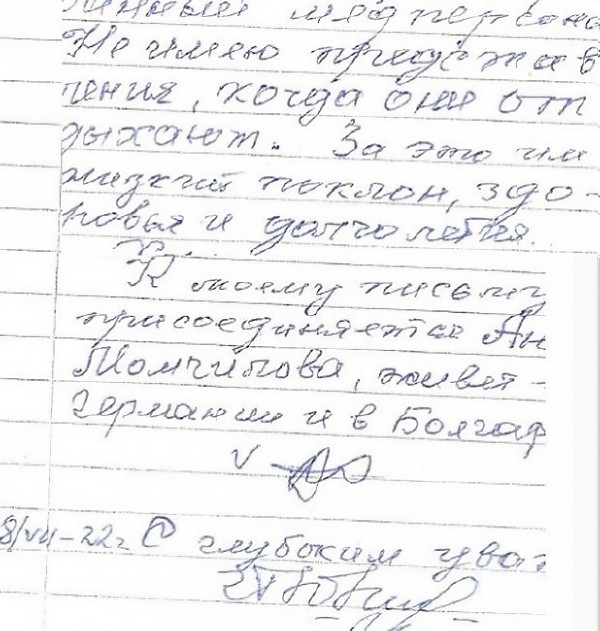 мед персона
Не имею представ
ления, когда они от
дыхают. За это им
низкий поклон, здо-
ровья и долголетия.
К моему письму
присоединяется Ан
Момчилова, живёт -
Германии и в Болгар
V
8/VII-22г С глубоким уваж